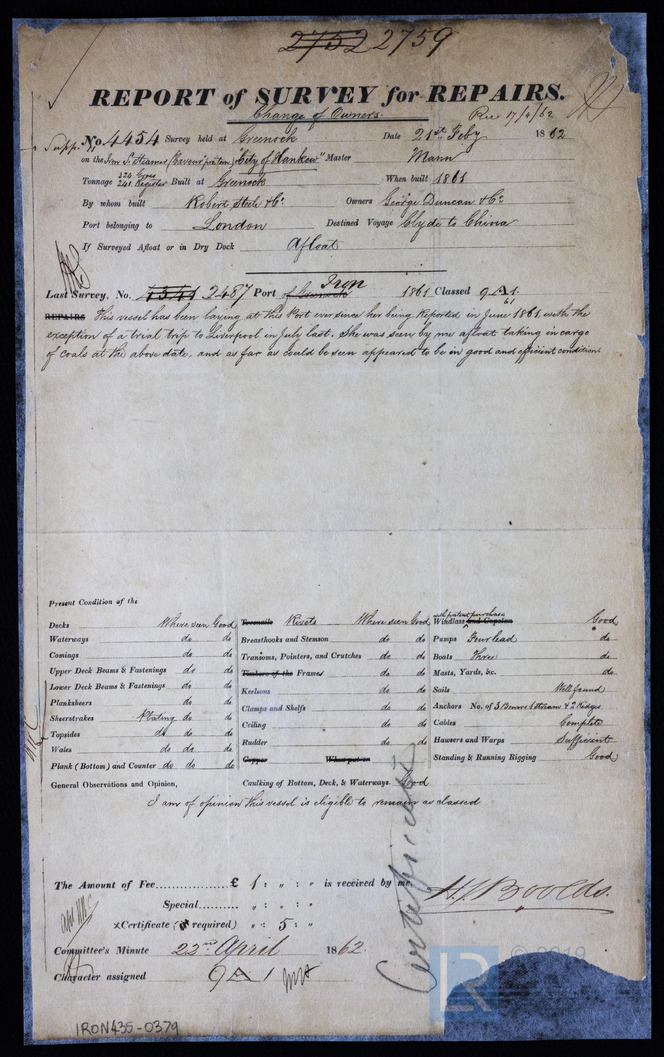 2752 2759
REPORT of SURVEY for REPAIRS.
Change of Owners.
Rec 17/4/62
Supp. No. 4454 Survey held at Greenock Date 21st Feby 1862
on the Iron S. Steamer "City of Hankow" Master Mann
Tonnage 174 Gross 241 Register Built at Greenock When built 1861
By whom built Robert Steele & Co. Owners George Duncan & Co.
Port belonging to London Destined Voyage Clyde to China
If Surveyed Afloat or in Dry Dock Afloat
Last Survey, No. 2487 Port Iron 1861 Classed 9 A 1. 61
REPAIRS This vessel has been laying at this Port ever since her being Reported in June 1861, with the
exception of a trial trip to Liverpool in July last. She was seen by me afloat taking in cargo
of Coals at the above date, and as far as could be seen appeared to be in good and efficient condition
Present Condition of the
Decks Where seen Good Treenails Rivets Where seen Good with patent purchase Windlass and Capstan Good
Waterways do do Breasthooks and Stemson do do Pumps Four lead do
Comings do do Transoms, Pointers, and Crutches do do Boats Three do
Upper Deck Beams & Fastenings do do Timbers of the Frames do do Masts, Yards, &c. do
Lower Deck Beams & Fastenings do do Keelsons do do Sails Well found
Planksheers do do Clamps and Shelfs do do Anchors No. of 3 Bowers 1 Stream & 2 Kedges
Sheerstrakes Plating do do Ceiling do do Cables Complete
Topsides do do do Rudder do do Hausers and Warps Sufficient
Wales do do do Copper When put on Standing & Running Rigging Good
Plank (Bottom) and Counter do do do Caulking of Bottom, Deck, & Waterways Good
General Observations and Opinion,
I am of opinion this vessel is eligible to remain as classed
The Amount of Fee £ 1 : " : " is received by me,
Special " : " : "
Certificate (if required) " : 5 : "
Certificate
Committee's Minute 22nd April 1862.
Character assigned 9 A 1
LR © 2019
IRON435-0379